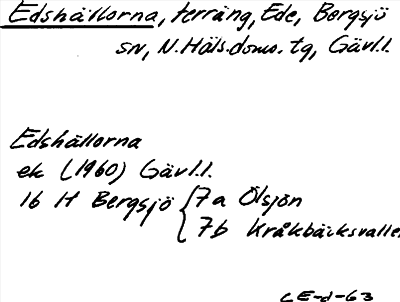 Edshällorna, terräng, Ede, Bergsjö
sn, N. Häls. doms. tg, Gävl.l.
Edshällorna
ek (1960) Gävl.l.
16 H Bergsjö 7a Ölsjön
7b Kråkbäcksvallen
CE-d-63